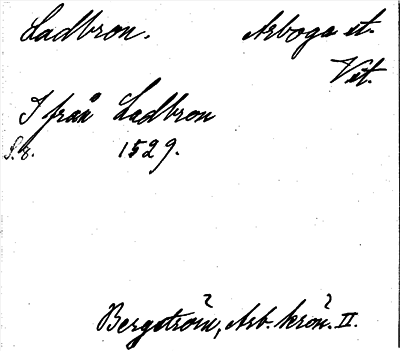 Ladbron. Arboga st.
Vst.
I från Ladbron
S. 8. 1529.
Bergström, Arb. krön. II.